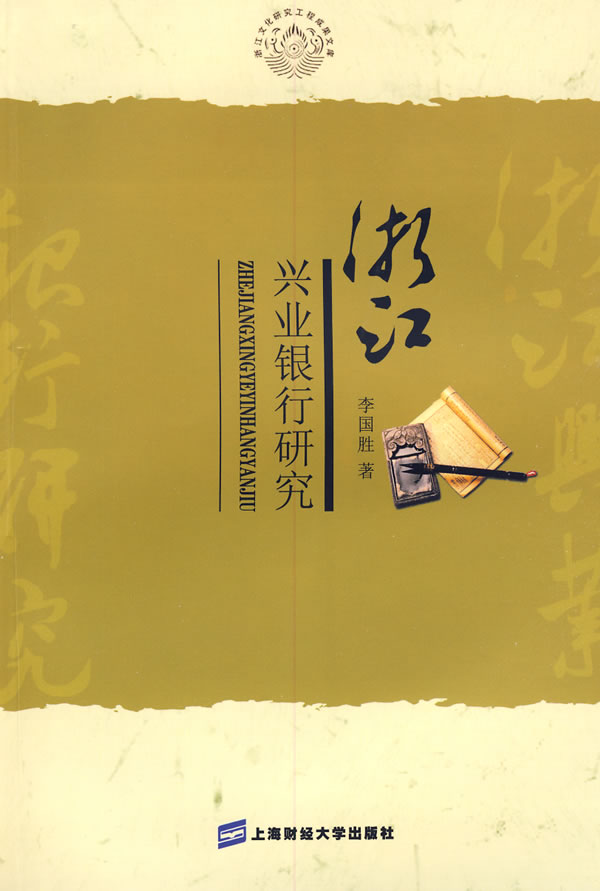 浙江文化研究工程成果文库
浙江
兴业银行研究
ZHEJIANGXINGYEYINHANGYANJIU
李国胜 著
浙江興業
銀行研究
上海财经大学出版社